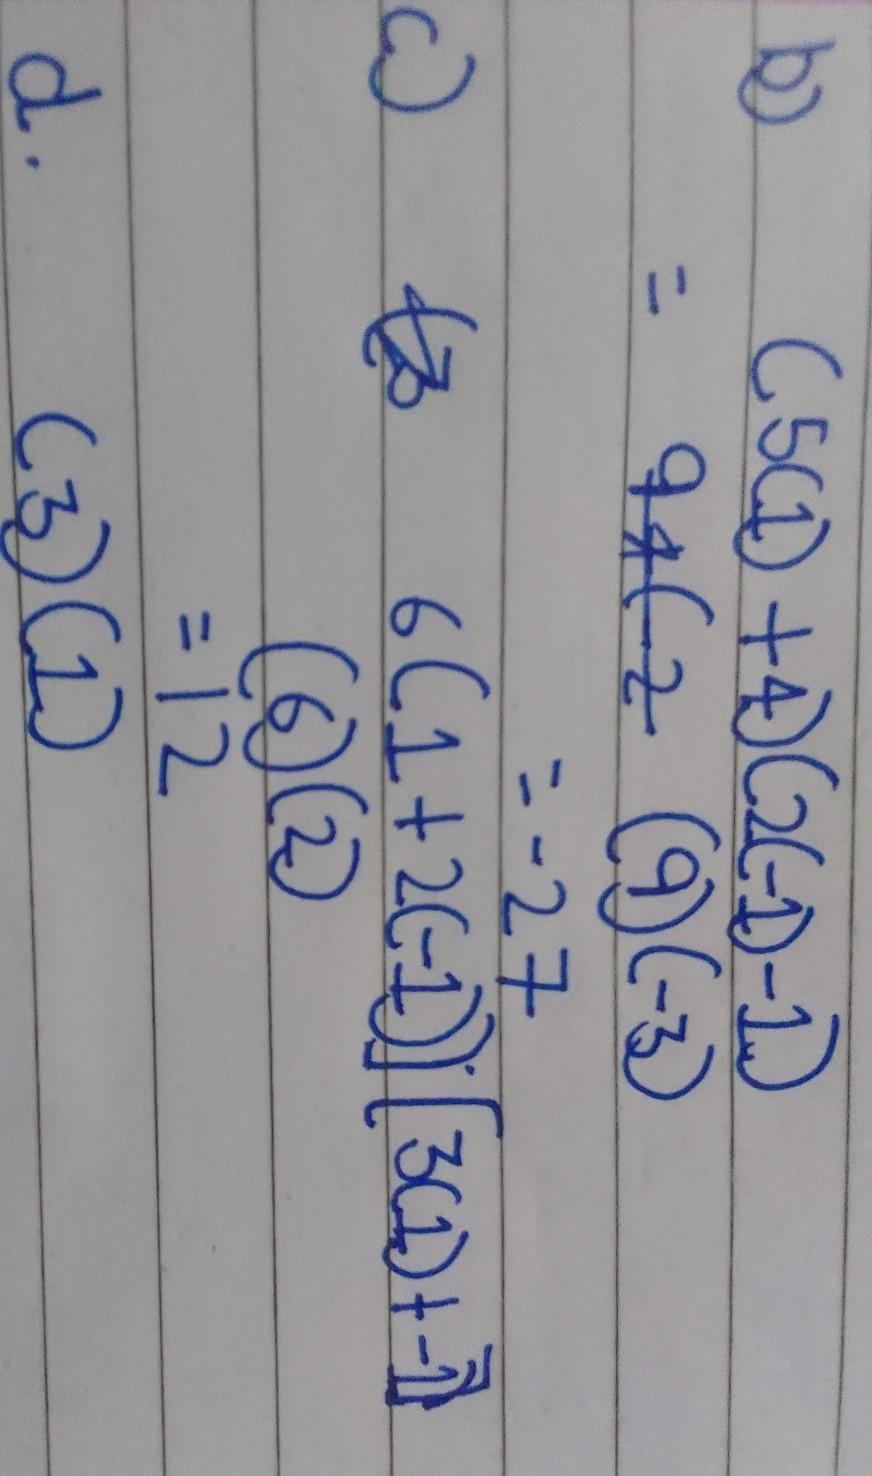 b) (5(1) +4)(2(-1)-1)
= (9)(-3)
= -27
c) 6(1+2(-1))] [3(1)+-1]
(6)(2)
=12
d. (3)(1)